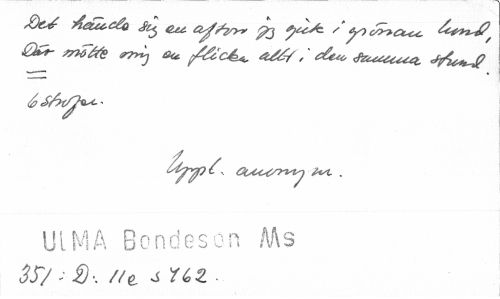 Det hände sig en afton jg gick i grönan lund,
Där mötte mig en flicka allt i den samma stund.
=
6 strofer.
Uppl. anonym.
ULMA Bondeson Ms
351: D: 11e s 162.